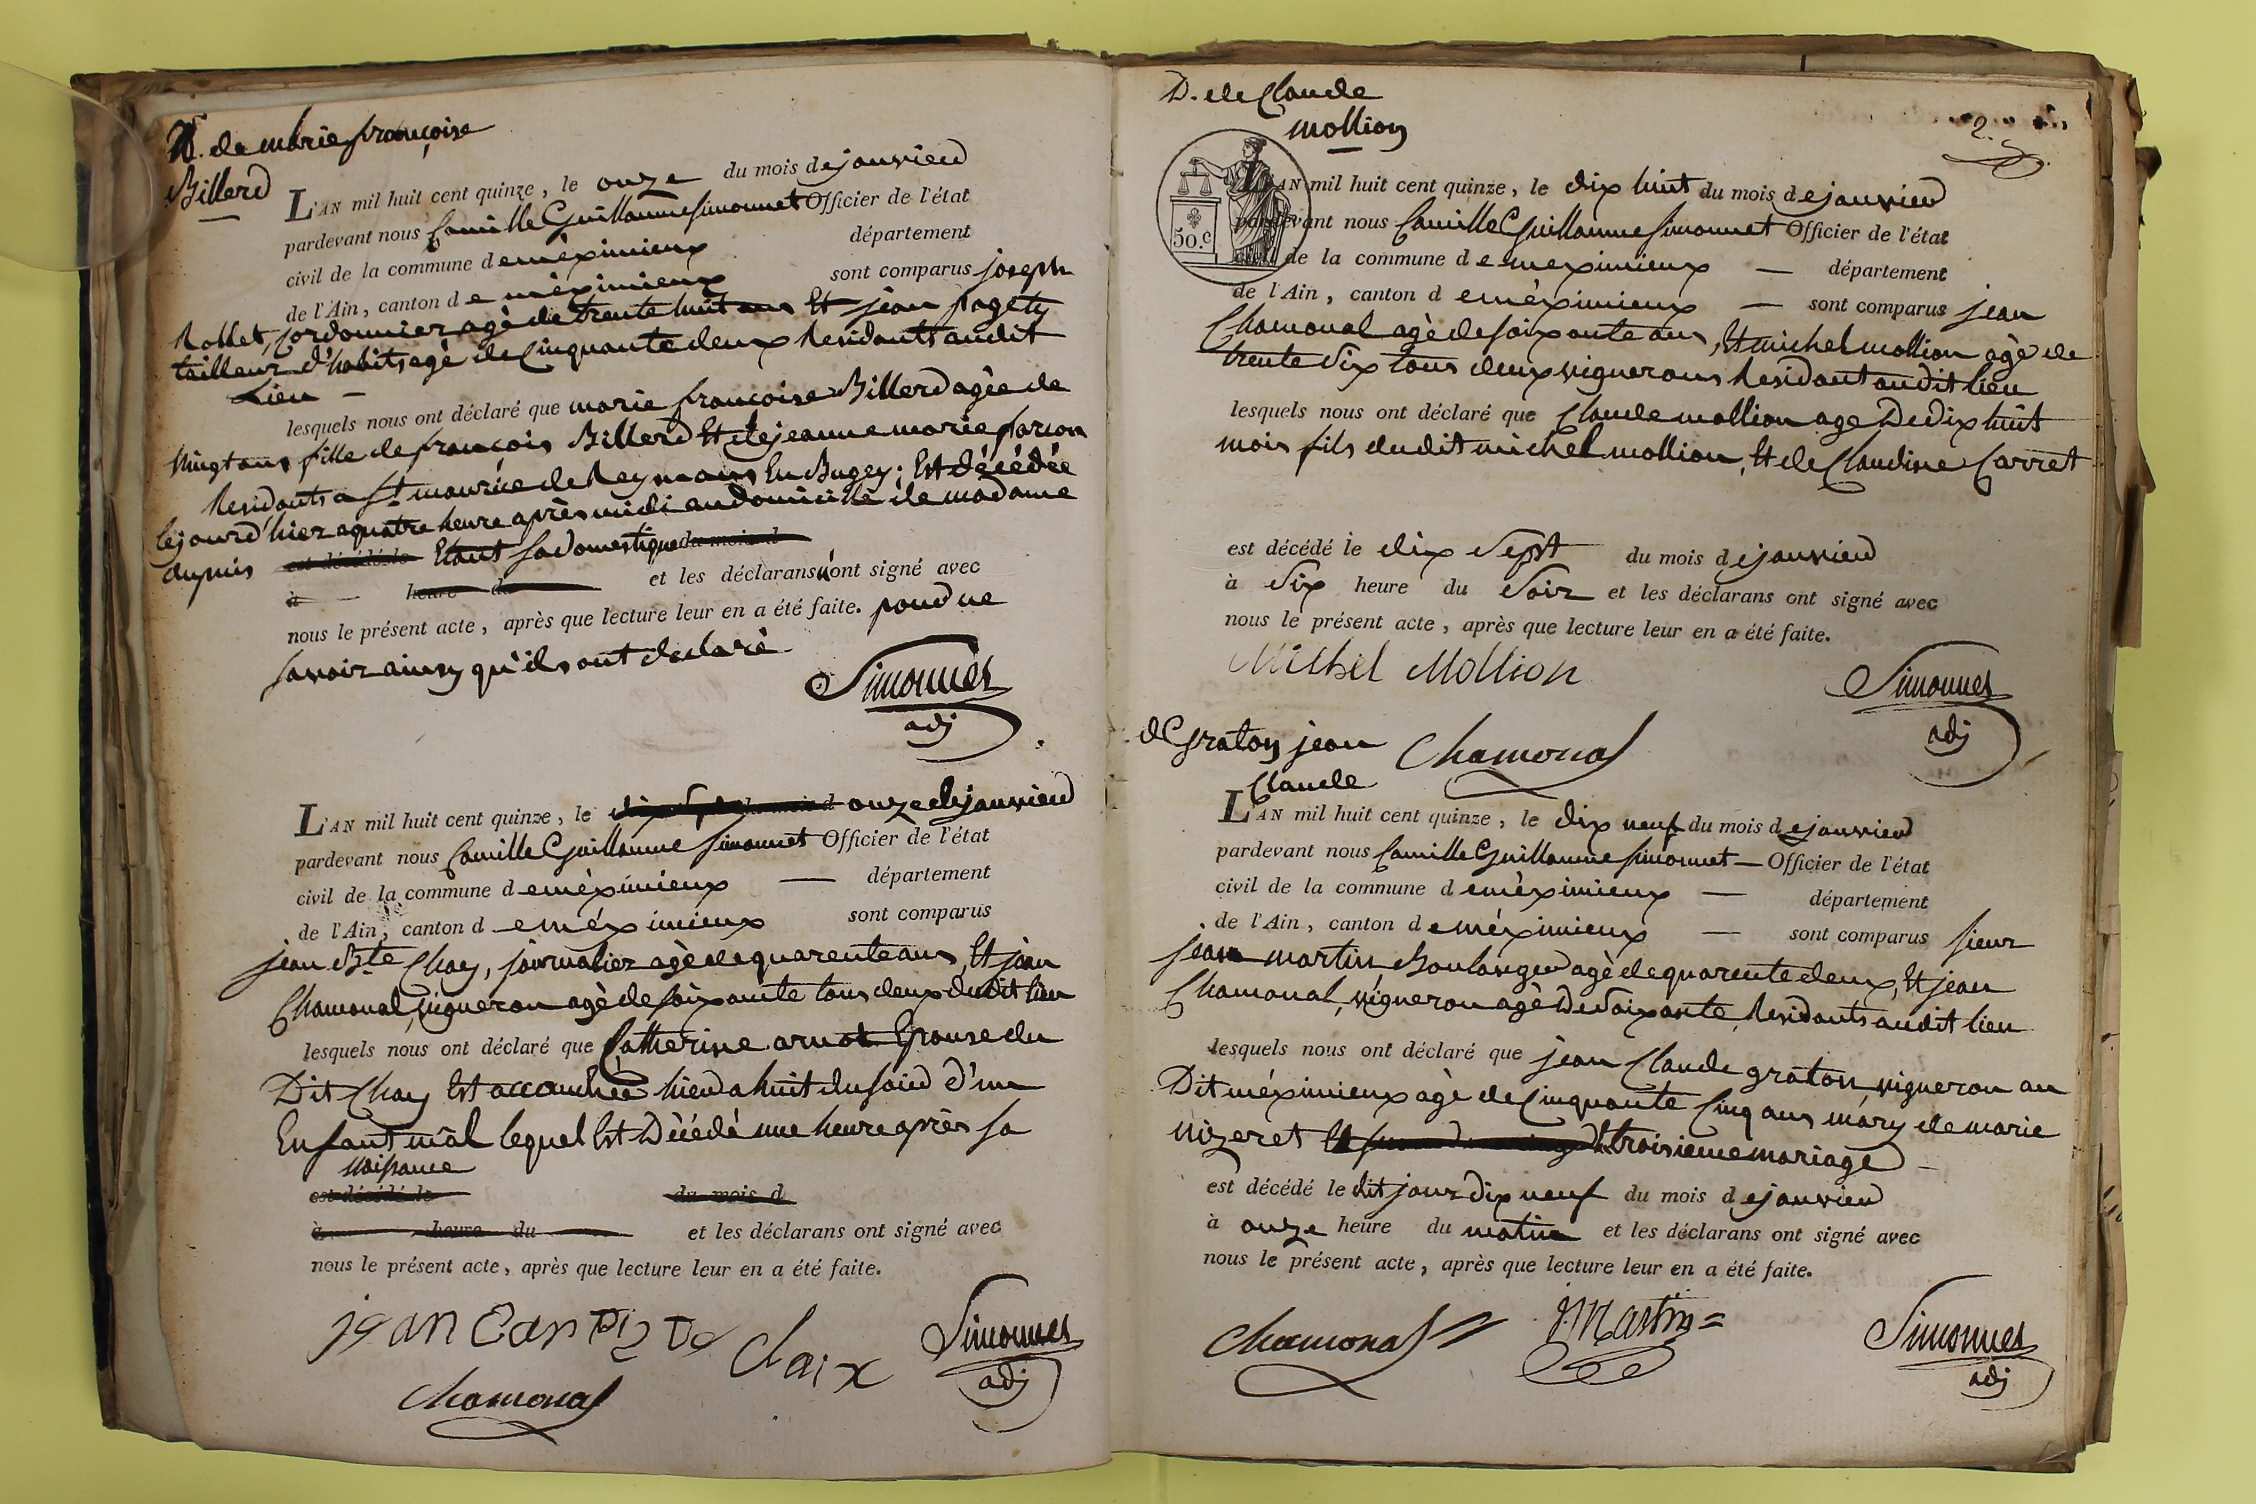 D. de marie françoise
Billerd
L'AN mil huit cent quinze, le onze du mois de janvier
pardevant nous Camille Guillaume Simonnet Officier de l'état
civil de la commune de méximieux département
de l'Ain, canton de méximieux sont comparus joseph
Rollet, Cordonnier agè de trente huit ans Et jean pagety
tailleur d'habits agè de Cinquante deux Residants audit
Lieu —
lesquels nous ont déclaré que marie françoise Billerd agèe de
vingt ans fille de françois Billerd Et de jeanne marie
Residants a St maurice de Reymans En Bugey; Est décédée
le jourd'hier a quatre heure après midi au domicile de madame
dupuis est décédé le Etant sa domestique du mois d
à — heure du et les déclarans n'ont signé avec
nous le présent acte, après que lecture leur en a été faite. pour ne
savoir ainsy qu'ils ont declarè
Simonnet
adj
L'AN mil huit cent quinze, le dix Sept du mois d onze de janvier
pardevant nous Camille Guillaume Simonnet Officier de l'état
civil de la commune de méximieux — département
de l'Ain, canton de méximieux sont comparus
jean Bte Chay, journalier agè de quarente ans, Et jean
Chamonal, vigneron agè de soixante tous deux dudit lieu
lesquels nous ont déclaré que Catherine arnot Epouse du
Dit Chay Est accouchée hier a huit du soir d'un
Enfant mâl lequel Est Décédé une heure après sa
naissance
est décédé le du mois d
à heure du et les déclarans ont signé avec
nous le présent acte, après que lecture leur en a été faite.
jean Claix
Simonnet
adj
Chamonal
D. de Claude
mollion
2.
50.c
L'AN mil huit cent quinze, le dix huit du mois de janvier
pardevant nous Camille Guillaume Simonnet Officier de l'état
civil de la commune de méximieux — département
de l'Ain, canton de méximieux — sont comparus jean
Chamonal agè de soixante ans, Et michel mollion agè de
trente Six tous deux vignerons Residant audit lieu
lesquels nous ont déclaré que Claude mollion age De dix huit
mois fils dudit michel mollion, Et de Claudine Carret
est décédé le dix Sept du mois de janvier
à Six heure du Soir et les déclarans ont signé avec
nous le présent acte, après que lecture leur en a été faite.
Michel Mollion
Simonnet
adj
Chamonal
d Graton jean
Claude
L'AN mil huit cent quinze, le dix neuf du mois de janvier
pardevant nous Camille Guillaume Simonnet — Officier de l'état
civil de la commune de méximieux — département
de l'Ain, canton de méximieux — sont comparus sieur
jean martin, Boulanger agè de quarente deux, Et jean
Chamonal, vigneron agè De Soixante, Residants audit lieu
lesquels nous ont déclaré que jean Claude graton vigneron au
Dit méximieux agè de Cinquante Cinq ans mary de marie
nizeret troisieme mariage —
est décédé le dit jour dix neuf du mois de janvier
à onze heure du matin et les déclarans ont signé avec
nous le présent acte, après que lecture leur en a été faite.
Chamonal
J. Martin
Simonnet
adj